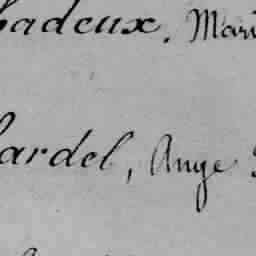 adeux, Mari
ardel, Ange